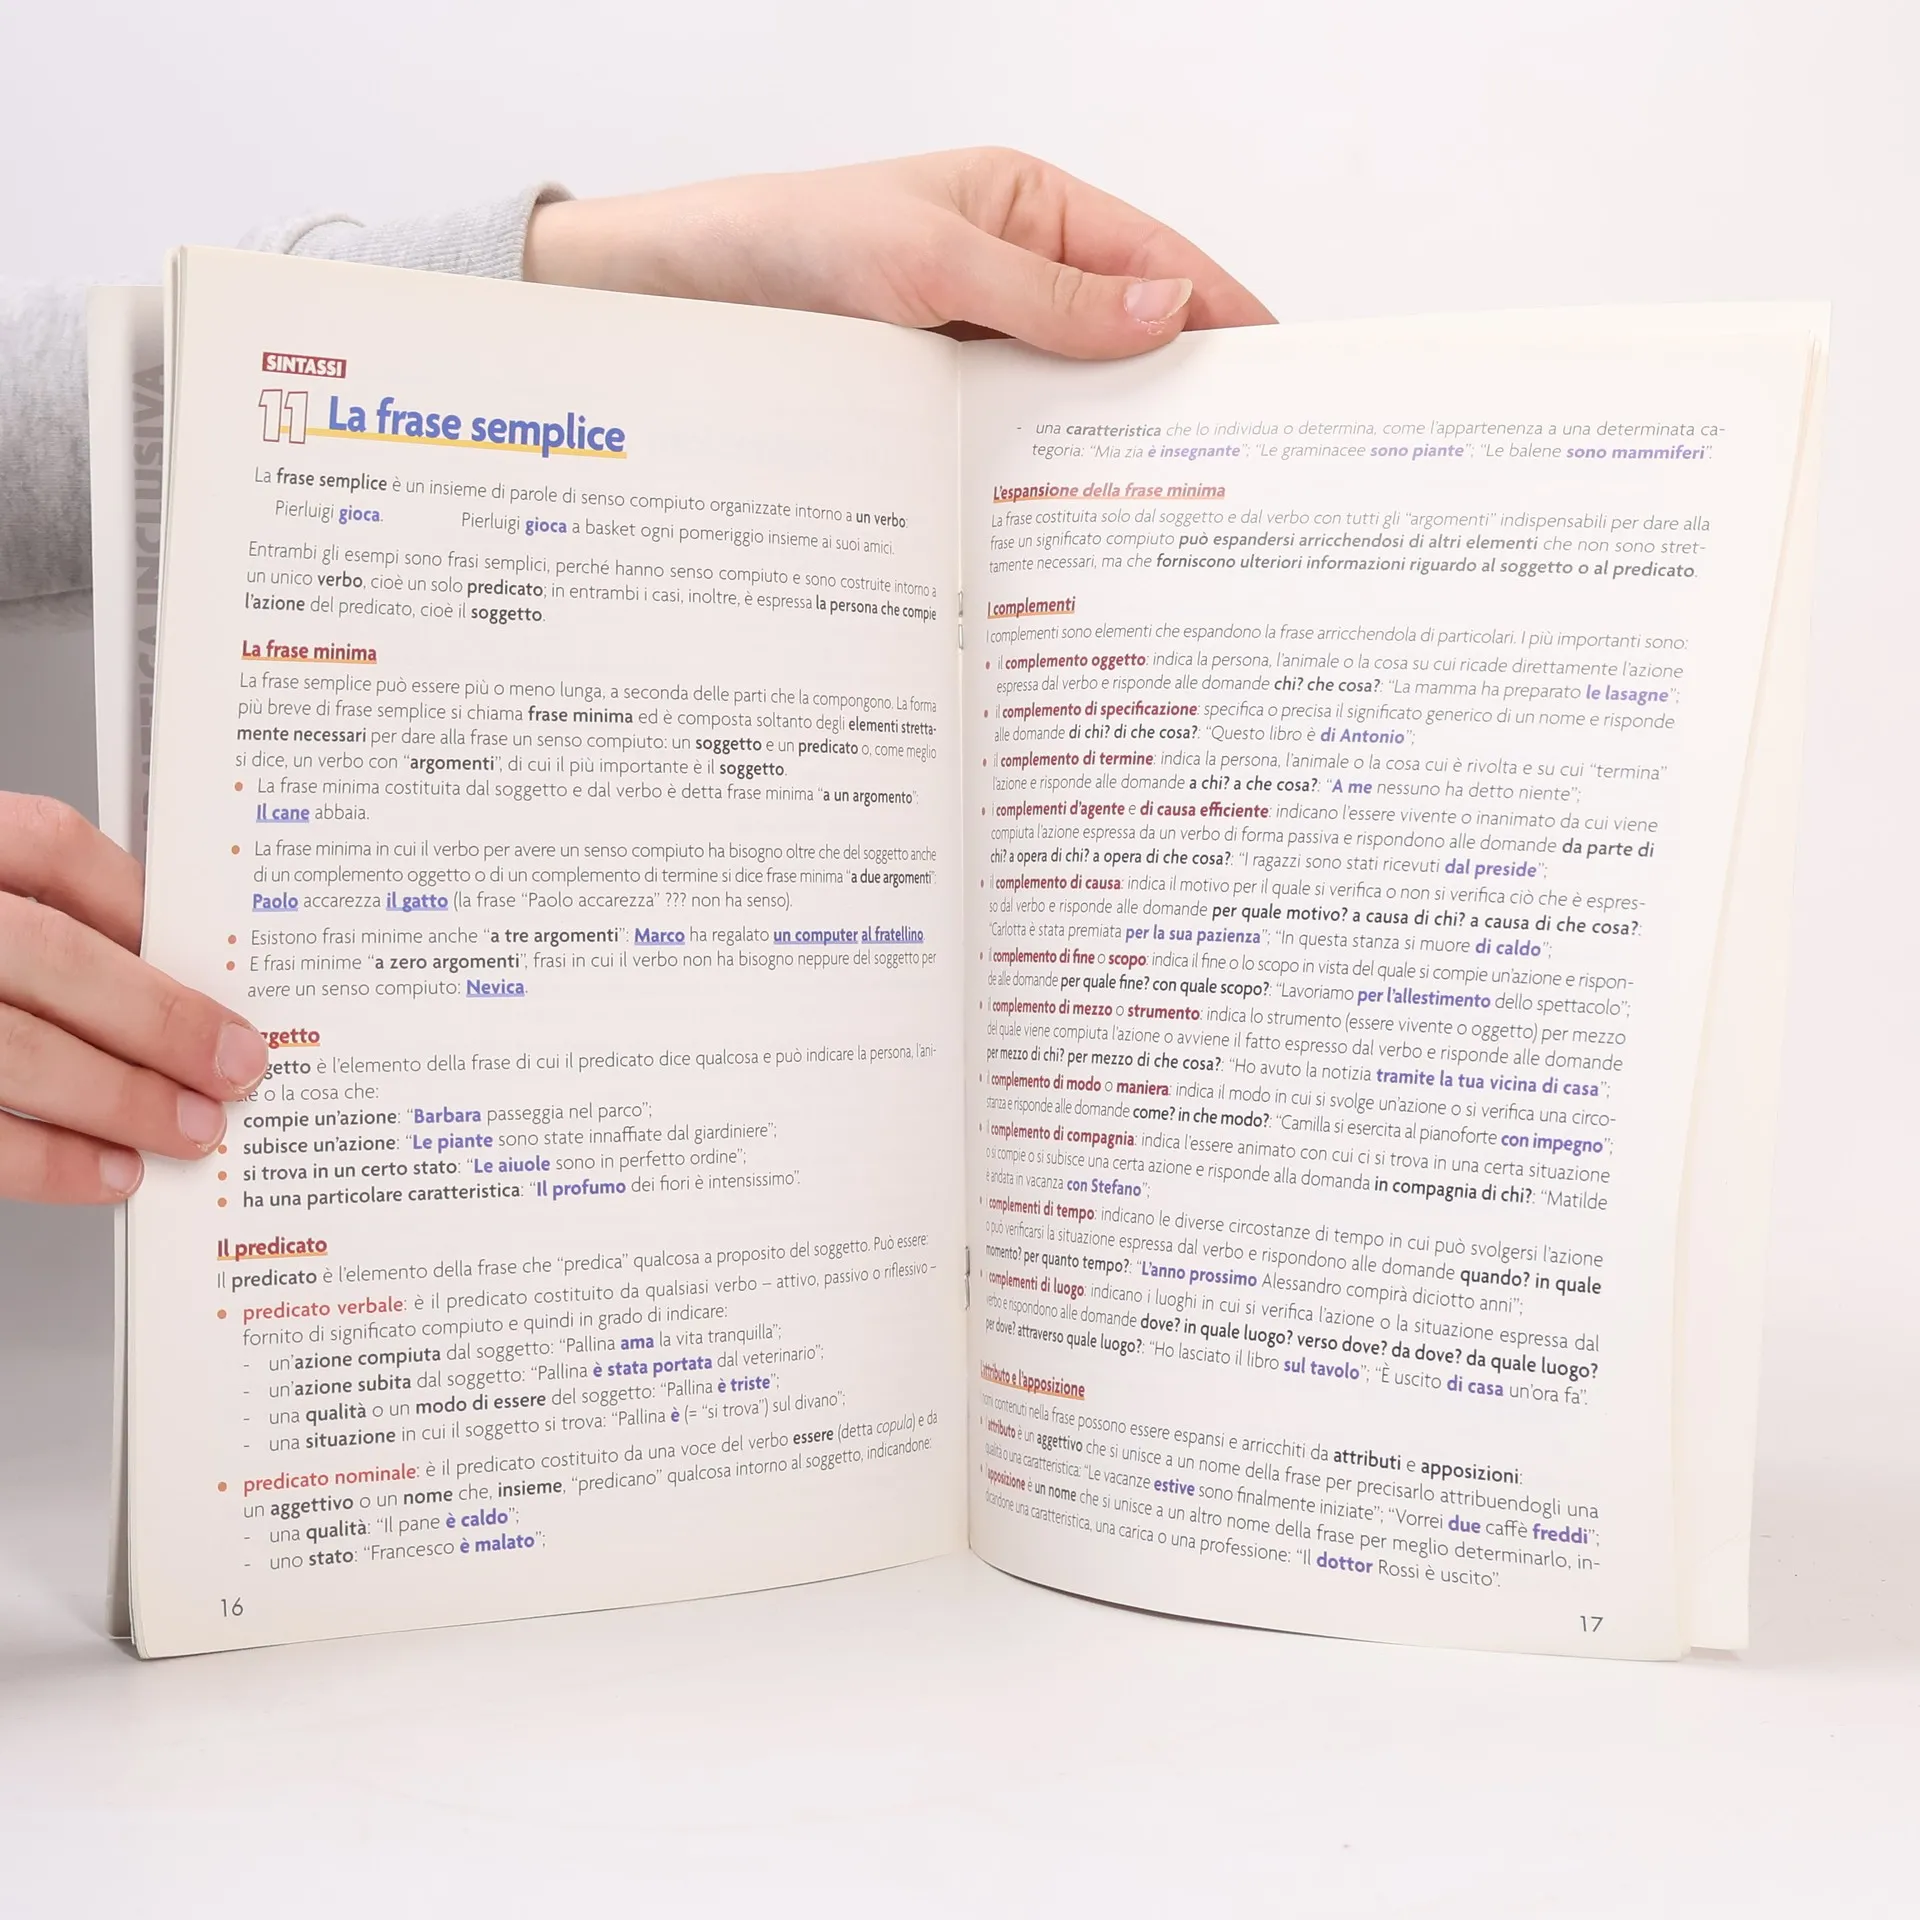 SINTASSI
11 La frase semplice
La frase semplice è un insieme di parole di senso compiuto organizzate intorno a un verbo:
Pierluigi gioca. Pierluigi gioca a basket ogni pomeriggio insieme ai suoi amici.
Entrambi gli esempi sono frasi semplici, perché hanno senso compiuto e sono costruite intorno a
un unico verbo, cioè un solo predicato; in entrambi i casi, inoltre, è espressa la persona che compie
l'azione del predicato, cioè il soggetto.
La frase minima
La frase semplice può essere più o meno lunga, a seconda delle parti che la compongono. La forma
più breve di frase semplice si chiama frase minima ed è composta soltanto degli elementi stretta-
mente necessari per dare alla frase un senso compiuto: un soggetto e un predicato o, come meglio
si dice, un verbo con "argomenti", di cui il più importante è il soggetto.
• La frase minima costituita dal soggetto e dal verbo è detta frase minima "a un argomento":
Il cane abbaia.
• La frase minima in cui il verbo per avere un senso compiuto ha bisogno oltre che del soggetto anche
di un complemento oggetto o di un complemento di termine si dice frase minima "a due argomenti":
Paolo accarezza il gatto (la frase "Paolo accarezza" ??? non ha senso).
• Esistono frasi minime anche "a tre argomenti": Marco ha regalato un computer al fratellino.
• E frasi minime "a zero argomenti", frasi in cui il verbo non ha bisogno neppure del soggetto per
avere un senso compiuto: Nevica.
ggetto
getto è l'elemento della frase di cui il predicato dice qualcosa e può indicare la persona, l'ani-
le o la cosa che:
compie un'azione: "Barbara passeggia nel parco";
• subisce un'azione: "Le piante sono state innaffiate dal giardiniere";
• si trova in un certo stato: "Le aiuole sono in perfetto ordine";
• ha una particolare caratteristica: "Il profumo dei fiori è intensissimo".
Il predicato
Il predicato è l'elemento della frase che "predica" qualcosa a proposito del soggetto. Può essere:
• predicato verbale: è il predicato costituito da qualsiasi verbo – attivo, passivo o riflessivo –
fornito di significato compiuto e quindi in grado di indicare:
- un'azione compiuta dal soggetto: "Pallina ama la vita tranquilla";
- un'azione subita dal soggetto: "Pallina è stata portata dal veterinario";
- una qualità o un modo di essere del soggetto: "Pallina è triste";
- una situazione in cui il soggetto si trova: "Pallina è (= "si trova") sul divano";
• predicato nominale: è il predicato costituito da una voce del verbo essere (detta copula) e da
un aggettivo o un nome che, insieme, "predicano" qualcosa intorno al soggetto, indicandone:
- una qualità: "Il pane è caldo";
- uno stato: "Francesco è malato";
16
- una caratteristica che lo individua o determina, come l'appartenenza a una determinata ca-
tegoria: "Mia zia è insegnante"; "Le graminacee sono piante"; "Le balene sono mammiferi".
L'espansione della frase minima
La frase costituita solo dal soggetto e dal verbo con tutti gli "argomenti" indispensabili per dare alla
frase un significato compiuto può espandersi arricchendosi di altri elementi che non sono stret-
tamente necessari, ma che forniscono ulteriori informazioni riguardo al soggetto o al predicato.
I complementi
I complementi sono elementi che espandono la frase arricchendola di particolari. I più importanti sono:
• il complemento oggetto: indica la persona, l'animale o la cosa su cui ricade direttamente l'azione
espressa dal verbo e risponde alle domande chi? che cosa?: "La mamma ha preparato le lasagne";
• il complemento di specificazione: specifica o precisa il significato generico di un nome e risponde
alle domande di chi? di che cosa?: "Questo libro è di Antonio";
• il complemento di termine: indica la persona, l'animale o la cosa cui è rivolta e su cui "termina"
l'azione e risponde alle domande a chi? a che cosa?: "A me nessuno ha detto niente";
• i complementi d'agente e di causa efficiente: indicano l'essere vivente o inanimato da cui viene
compiuta l'azione espressa da un verbo di forma passiva e rispondono alle domande da parte di
chi? a opera di chi? a opera di che cosa?: "I ragazzi sono stati ricevuti dal preside";
• il complemento di causa: indica il motivo per il quale si verifica o non si verifica ciò che è espres-
so dal verbo e risponde alle domande per quale motivo? a causa di chi? a causa di che cosa?:
"Carlotta è stata premiata per la sua pazienza"; "In questa stanza si muore di caldo";
• il complemento di fine o scopo: indica il fine o lo scopo in vista del quale si compie un'azione e rispon-
de alle domande per quale fine? con quale scopo?: "Lavoriamo per l'allestimento dello spettacolo";
• il complemento di mezzo o strumento: indica lo strumento (essere vivente o oggetto) per mezzo
del quale viene compiuta l'azione o avviene il fatto espresso dal verbo e risponde alle domande
per mezzo di chi? per mezzo di che cosa?: "Ho avuto la notizia tramite la tua vicina di casa";
• il complemento di modo o maniera: indica il modo in cui si svolge un'azione o si verifica una circo-
stanza e risponde alle domande come? in che modo?: "Camilla si esercita al pianoforte con impegno";
• il complemento di compagnia: indica l'essere animato con cui ci si trova in una certa situazione
o si compie o si subisce una certa azione e risponde alla domanda in compagnia di chi?: "Matilde
è andata in vacanza con Stefano";
• i complementi di tempo: indicano le diverse circostanze di tempo in cui può svolgersi l'azione
o può verificarsi la situazione espressa dal verbo e rispondono alle domande quando? in quale
momento? per quanto tempo?: "L'anno prossimo Alessandro compirà diciotto anni";
• i complementi di luogo: indicano i luoghi in cui si verifica l'azione o la situazione espressa dal
verbo e rispondono alle domande dove? in quale luogo? verso dove? da dove? da quale luogo?
per dove? attraverso quale luogo?: "Ho lasciato il libro sul tavolo"; "È uscito di casa un'ora fa".
L'attributo e l'apposizione
I nomi contenuti nella frase possono essere espansi e arricchiti da attributi e apposizioni:
• l'attributo è un aggettivo che si unisce a un nome della frase per precisarlo attribuendogli una
qualità o una caratteristica: "Le vacanze estive sono finalmente iniziate"; "Vorrei due caffè freddi";
• l'apposizione è un nome che si unisce a un altro nome della frase per meglio determinarlo, in-
dicandone una caratteristica, una carica o una professione: "Il dottor Rossi è uscito".
17
INCLUSIVA